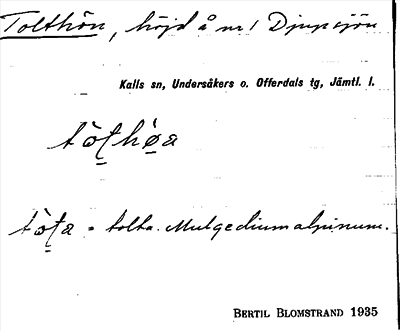 Tolthön, höjd å nr 1 Djupsjön
Kalls sn, Undersåkers o. Offerdals tg, Jämtl. l.
tòt̠hø̀a
tòt̠a = tolta. Mulgedium alpinum.
BERTIL BLOMSTRAND 1935